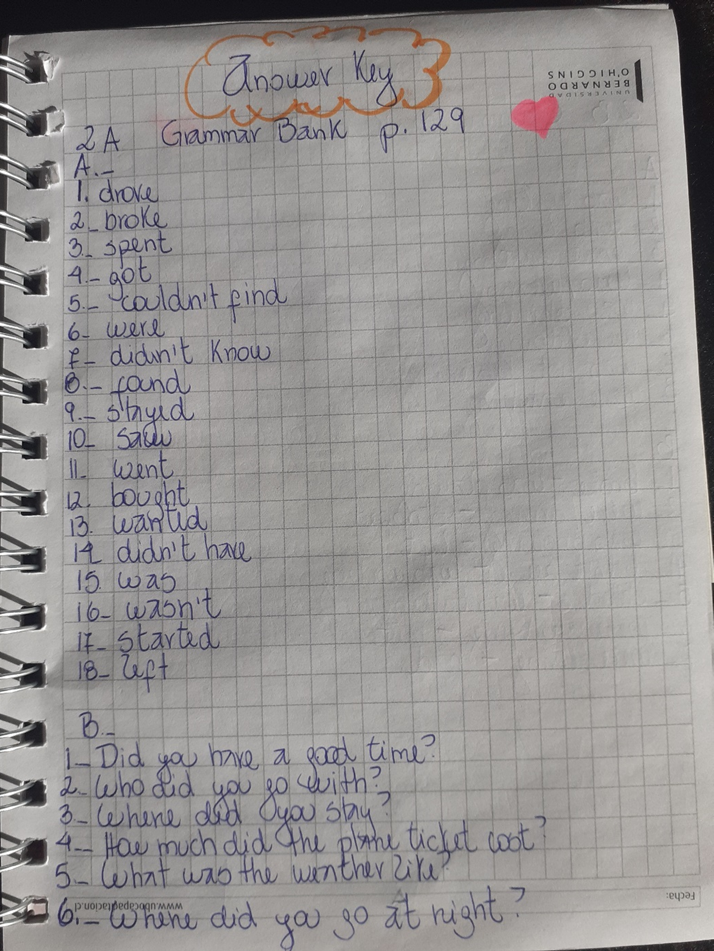 Answer Key
UNIVERSIDAD
BERNARDO
O'HIGGINS
2A Grammar Bank p. 129
A.-
1. drove
2- broke
3- spent
4.- got
5.- couldn't find
6- were
7- didn't know
8.- found
9.- stayed
10- saw
11. went
12. bought
13. wanted
14. didn't have
15. was
16- wasn't
17- started
18- left
B.-
1- Did you have a good time?
2- Who did you go with?
3- Where did you stay?
4- How much did the plane ticket cost?
5- What was the weather like?
Fecha:
6.- Where did you go at night?